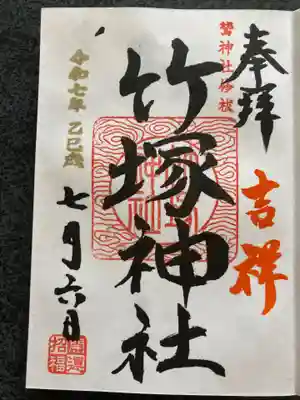 奉拝
吉祥
鷲神社参拝
竹塚神社
令和七年 乙巳歳
七月六日
開運
招福